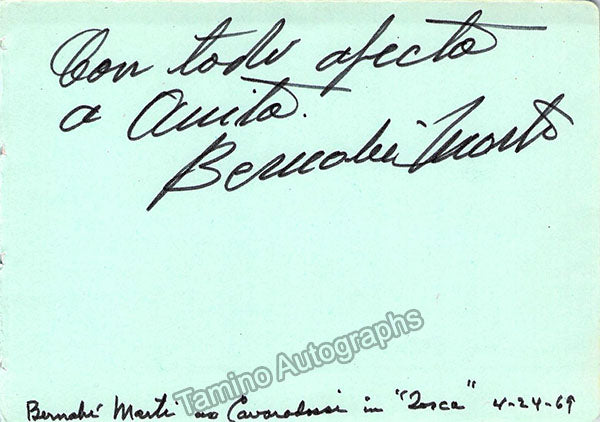 Con todo afecto
a Anita.
Bernabé Martí
Tamino Autographs
Bernabé Martí as Cavaradossi in "Tosca" 4-24-69